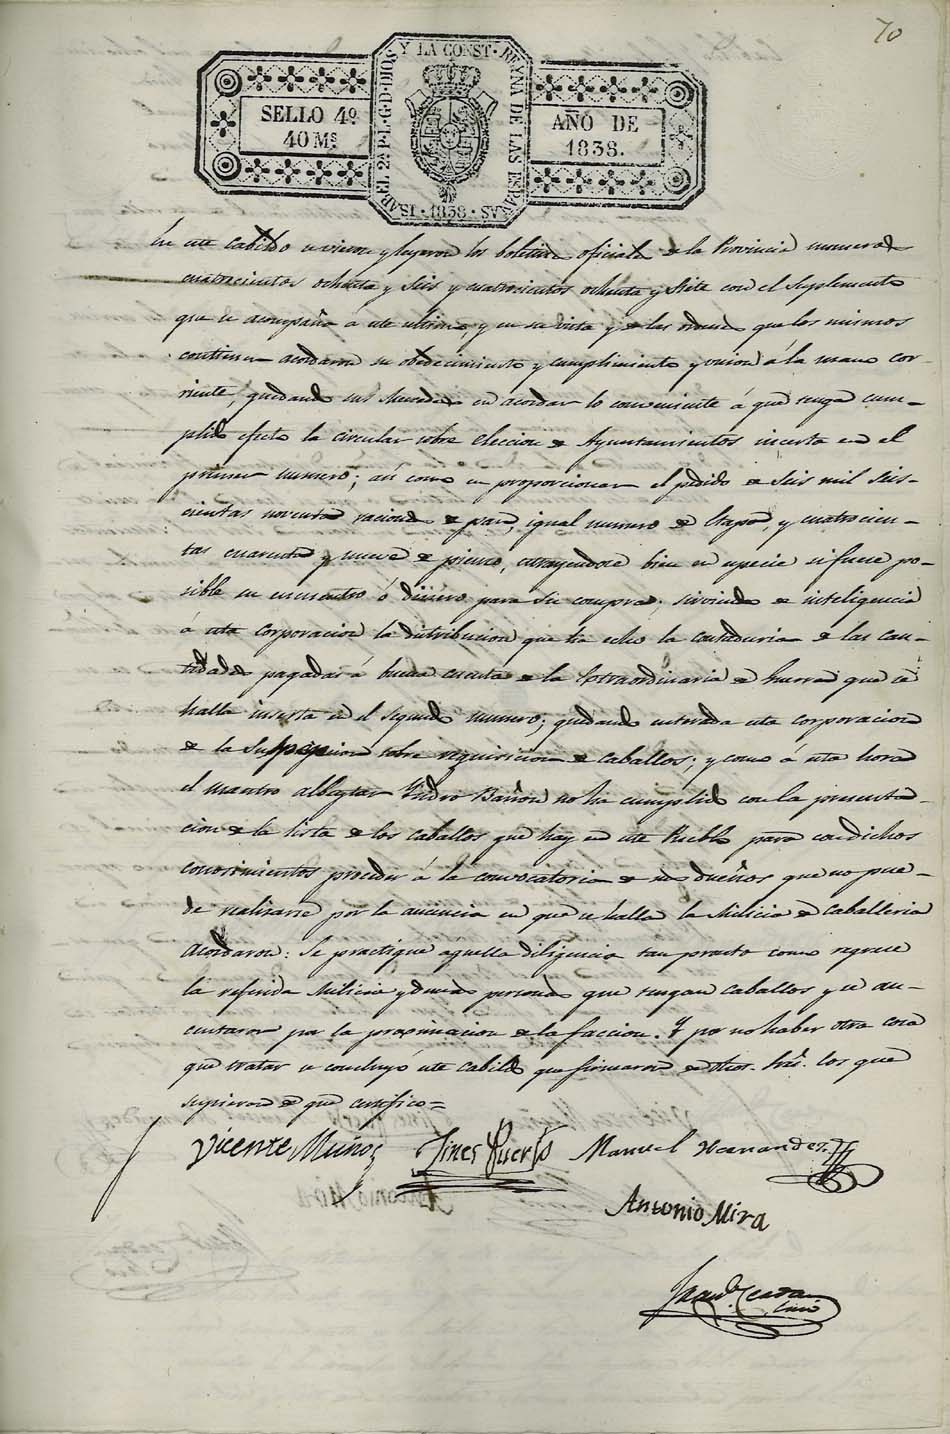 70
SELLO 4º
40 Ms
ISABEL 2ª P. L. G. D. DIOS Y LA CONST. REYNA DE LAS ESPAÑAS
1838
AÑO DE
1838.
En este Cabildo se vieron y leyeron los boletines oficiales de la Provincia numeros
cuatrocientos ochenta y Seis y cuatrocientos ochenta y Siete con el Suplemento
que se acompaña á este ultimo, y en su vista y de las ordenes que los mismos
contienen acordaron su obedecimiento y cumplimiento y union á la mano cor-
riente, quedando sus Mercedes en acordar lo conveniente á que tenga cum-
plido efecto la circular sobre eleccion de Ayuntamientos inserta en el
primer numero; asi como en proporcionar el pedido de Seis mil Seis-
cientas noventa raciones de pan, igual numero de Etapa, y cuatrocien-
tas cuarenta y nueve de pienso, bien en especie si fuere po-
sible su encuentro ó dinero para Su compra. sirviendo de inteligencia
á esta Corporacion la distribucion que ha echo la Contaduria de las can-
tidades pagadas á buena cuenta de la Extraordinaria de Guerra que se
halla inserta en el segundo numero; quedando enterada esta corporacion
de la sobre requisicion de Caballos; y como á esta hora
el Maestro albeytar Ysidro Bañon no ha cumplido con la presenta-
cion de la lista de los caballos que hay en este Pueblo para con dichos
conocimientos proceder á la convocatoria de sus dueños que no pue-
de realizarse por la ausencia en que se halla la Milicia de Caballeria
Acordaron: Se practique aquella diligencia tan pronto como regrese
la referida Milicia y demas personas que tengan caballos y se au-
sentaron por la proximacion de la faccion. Y por no haber otra cosa
que tratar se concluyó este Cabildo que firmaron de dhos. Sres. los que
supieron de que certifico=
Vicente Muñoz Gines Puerto Manuel Hernandez
Antonio Mira